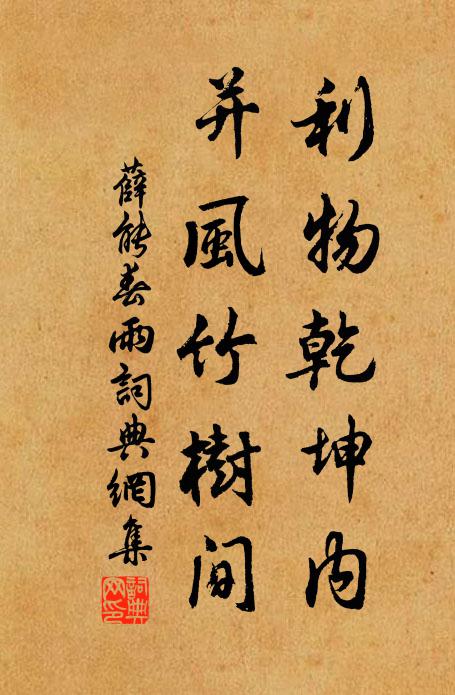 利物乾坤内
并風竹樹間
薛能春雨詞典網集
詞典
网印